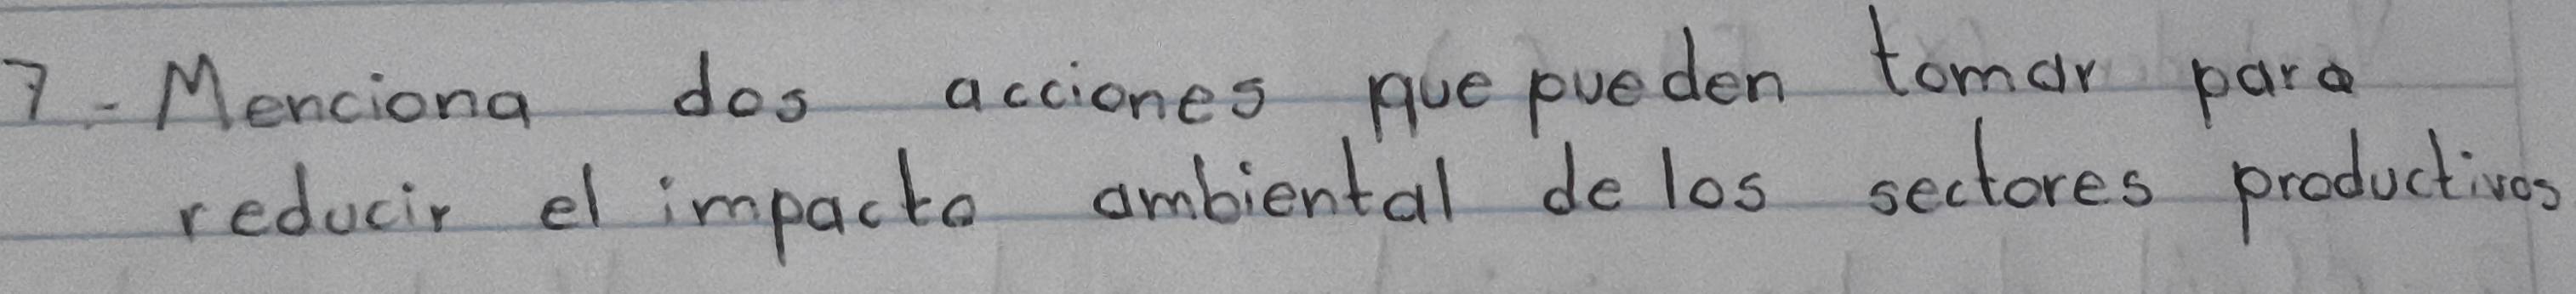 7.- Menciona dos acciones que pueden tomar para
reducir el impacto ambiental de los sectores productivos